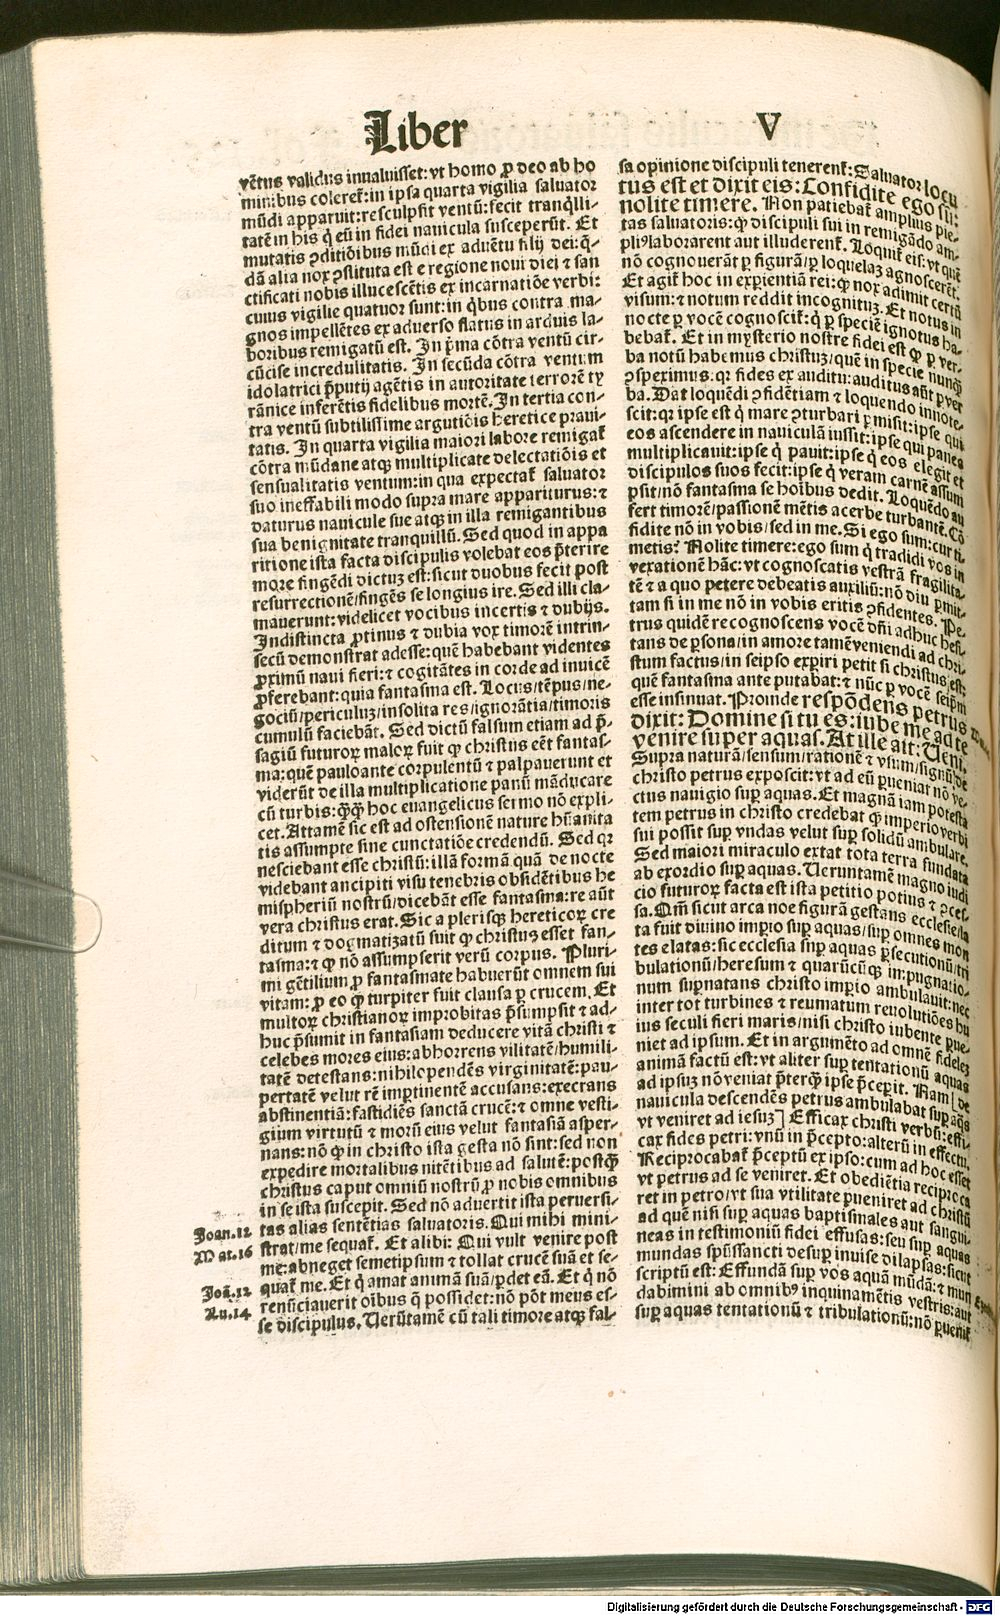 Liber V
vētus validus inualuisset: vt homo ꝓ deo ab ho
minibus coleret᷑: in ipsa quarta vigilia saluator
mūdi apparuit: resculpsit ventū: fecit tranq̇lli-
tatē in his q̇ eū in fidei nauicula susceperūt. Et
mutatis ꝯditiōibus mūdi ex aduētu filij dei: q̄-
dā alia nox ꝯstituta est e regione noui diei ⁊ san
ctificati nobis illucescētis ex incarnatiōe verbi:
cuius vigilie quatuor sunt: in q̇bus contra ma-
gnos impellētes ex aduerso flatus in arduis la-
boribus remigatū est. In p̄ma cōtra ventū cir-
cūcise incredulitatis. In secūda cōtra ventum
idolatrici p̄putij agētis in autoritate terrorē ty
rānice inferētis fidelibus mortē. In tertia con-
tra ventū subtilissime argutiōis heretice praui-
tatis. In quarta vigilia maiori labore remigat᷑
cōtra mūdane atqꝫ multiplicate delectatiōis et
sensualitatis ventum: in qua expectat᷑ saluator
suo ineffabili modo supra mare appariturus: ⁊
daturus nauicule sue atqꝫ in illa remigantibus
sua benignitate tranquillū. Sed quod in appa
ritione ista facta discipulis volebat eos p̄terire
more fingēdi dictuꝫ est: sicut duobus fecit post
resurrectionē/fingēs se longius ire. Sed illi cla-
mauerunt: videlicet vocibus incertis ⁊ dubijs.
Indistincta ꝓtinus ⁊ dubia vox timorē intrin-
secū demonstrat adesse: quē habebant videntes
ꝓximū naui fieri: ⁊ cogitātes in corde ad inuicē
ꝓferebant: quia fantasma est. Locus/tēpus/ne-
gociū/periculuꝫ/insolita res/ignorātia/timoris
cumulū faciebāt. Sed dictū falsum etiam ad p̄-
sagiū futuroꝝ maloꝝ fuit qꝫ christus eēt fantas-
ma: quē pauloante corpulentū ⁊ palpauerunt et
viderūt de illa multiplicatione panū māducare
cū turbis: q̄qꝫ hoc euangelicus sermo nō expli-
cet. Attamē sic est ad ostensionē nature hūanita
tis assumpte sine cunctatiōe credendū. Sed qꝛ
nesciebant esse christū: illā formā quā de nocte
videbant ancipiti visu tenebris obsidētibus he
mispheriū nostrū/dicebāt esse fantasma: re aūt
vera christus erat. Sic a plerisqꝫ hereticoꝝ cre
ditum ⁊ dogmatizatū fuit qꝫ christuꝫ esset fan-
tasma: ⁊ qꝫ nō assumpserit verū corpus. Pluri-
mi gētilium ꝓ fantasmate habuerūt omnem sui
vitam: ꝓ eo qꝫ turpiter fuit clausa ꝑ crucem. Et
multoꝝ christianoꝝ improbitas p̄sumpsit ⁊ ad-
huc p̄sumit in fantasiam deducere vitā christi ⁊
celebes mores eius: abhorrens vilitatē/humili-
tatē detestans: nihilopendēs virginitatē: pau-
pertatē velut rē imꝑtinentē accusans: execrans
abstinentiā: fastidiēs sanctā crucē: ⁊ omne vesti-
gium virtutū ⁊ morū eius velut fantasiā asper-
nans: nō qꝫ in christo ista gesta nō sint: sed non
expedire mortalibus nitētibus ad salutē: postqꝫ
christus caput omniū nostrū ꝓ nobis omnibus
in se ista suscepit. Sed nō aduertit ista peruersi-
tas alias sentētias saluatoris. Qui mihi mini-
strat/me sequat᷑. Et alibi: Qui vult venire post
me: abneget semetipsum ⁊ tollat crucē suā et se-
quat᷑ me. Et q̇ amat animā suā/ꝑdet eā. Et q̇ nō
renūciauerit oībus q̄ possidet: nō pōt meus es-
se discipulus. Uerūtamē cū tali timore atqꝫ fal-
Joan.12
Mat.16
Joā.12
Lu.14
sa opinione discipuli tenerent᷑: Saluator locu
tus est et dixit eis: Confidite ego sū:
nolite timere. Non patiebat᷑ amplius pie-
tas saluatoris: qꝫ discipuli sui in remigādo am-
pliꝰ laborarent aut illuderent᷑. Loquit᷑ eis: vt quē
nō cognouerāt ꝑ figurā/ꝑ loquelaꝫ agnoscerēt.
Et agit᷑ hoc in exꝑientiā rei: qꝫ nox adimit certū
visum: ⁊ notum reddit incognituꝫ. Et notus in
nocte ꝑ vocē cognoscit᷑: q̇ ꝑ speciē ignotus ha-
bebat᷑. Et in mysterio nostre fidei est qꝫ ꝑ ver-
ba notū habemus christuꝫ/quē in specie nunqꝫ
ꝯspeximus: qꝛ fides ex auditu: auditus aūt ꝑ ver
ba. Dat loquēdi ꝯfidētiam ⁊ loquendo innote-
scit: qꝛ ipse est q̇ mare ꝯturbari ꝑmisit: ipse qui
eos ascendere in nauiculā iussit: ipse qui panes
multiplicauit: ipse q̇ pauit: ipse q̇ eos elegit et
discipulos suos fecit: ipse q̇ veram carnē assum
psit/nō fantasma se hoībus dedit. Loquēdo au
fert timorē/passionē mētis acerbe turbantē. Cō
fidite nō in vobis/sed in me. Si ego sum: cur ti
metis? Nolite timere: ego sum q̇ tradidi vos in
vexationē hāc: vt cognoscatis vestrā fragilita-
tē ⁊ a quo petere debeatis auxiliū: nō diu ꝑmit-
tam si in me nō in vobis eritis ꝯfidentes. Pe-
trus quidē recognoscens vocē dn̄i adhuc hesi-
tans de ꝑsona/in amore tamē veniendi ad chri-
stum factus/in seipso exꝑiri petit si christus est:
quē fantasma ante putabat: ⁊ nūc ꝑ vocē seip̄m
esse insinuat. Proinde respōdens petrus
dixit: Domine si tu es: iube me ad te
venire super aquas. At ille ait: Ueni.
Supra naturā/sensum/rationē ⁊ vsum/signū de
christo petrus exposcit: vt ad eū ꝑueniar nō ve-
ctus nauigio suꝑ aquas. Et magnā iam potesta
tem petrus in christo credebat qꝫ imperio verbi
sui possit suꝑ vndas velut suꝑ solidū ambulare.
Sed maiori miraculo extat tota terra fundata
ab exordio suꝑ aquas. Ueruntamē magno iudi
cio futuroꝝ facta est ista petitio potius ⁊ ꝯces-
sa. Qm̄ sicut arca noe figurā gestans ecclesie/la
ta fuit diuino imꝑio suꝑ aquas/suꝑ omnes mon
tes elatas: sic ecclesia suꝑ aquas ꝑsecutionū/tri
bulationū/heresum ⁊ quarūcūqꝫ impugnatio-
num suꝑnatans christo imꝑio ambulauit: nec
inter tot turbines ⁊ reumatum reuolutiōes hu
ius seculi fieri maris/nisi christo iubente ꝑue-
niet ad ipsum. Et in argumēto ad omnē fideleꝫ
animā factū est: vt aliter suꝑ tentationū aquas
ad ipsuꝫ nō veniat p̄terqꝫ ipse p̄ceꝑit. Nam [de
nauicula descendēs petrus ambulabat suꝑ aq̄s
vt veniret ad iesuꝫ] Efficax christi verbū: effi-
cax fides petri: vnū in p̄cepto: alterū in effectu.
Reciprocabat᷑ p̄ceptū ex ipso: cum ad hoc esset
vt petrus ad se veniret. Et obediētia reciproca
ret in petro/vt sua vtilitate ꝑueniret ad christū
ad quē nisi suꝑ aquas baptismales aut sangui-
neas in testimoniū fidei effusas: seu suꝑ aquas
mundas spūssancti desuꝑ inuise dilapsas: sicut
scriptū est: Effundā suꝑ vos aquā mūdā: ⁊ mun
dabimini ab omnibꝰ inquinamētis vestris: aut
suꝑ aquas tentationū ⁊ tribulationū: nō ꝑuenit᷑
Digitalisierung gefördert durch die Deutsche Forschungsgemeinschaft - DFG